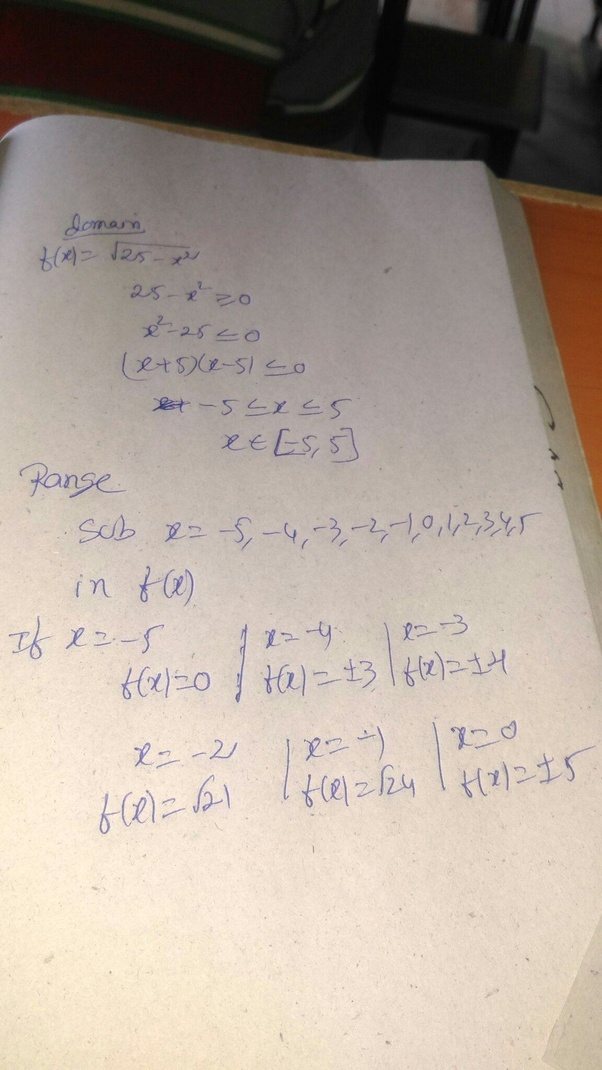 domain
f(x) = √25 - x²
25 - x² ≥ 0
x² - 25 ≤ 0
(x+5)(x-5) ≤ 0
-5 ≤ x ≤ 5
x ∈ [-5, 5]
Range
sub x = -5, -4, -3, -2, -1, 0, 1, 2, 3, 4, 5
in f(x)
If x = -5 | x = -4 | x = -3
f(x) = 0 | f(x) = ±3 | f(x) = ±4
x = -2 | x = -1 | x = 0
f(x) = √21 | f(x) = √24 | f(x) = ±5